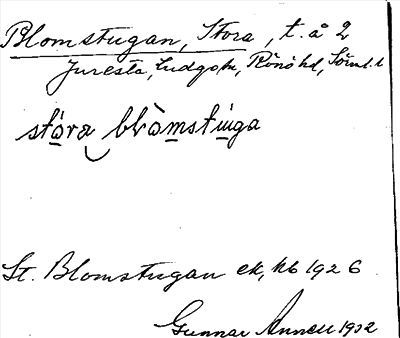 Blomstugan, Stora, t. å 2
Juresta, Ludgo sn, Rönö hd, Sörml. l
stóra blòmstùga
St. Blomstugan ek, hb 1926
Gunnar Annell 1932